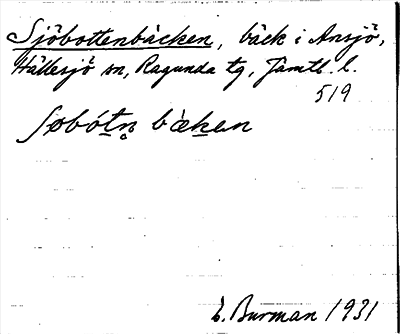 Sjöbottenbäcken, bäck i Ansjö,
Hällesjö sn, Ragunda tg, Jämtl. l.
519
Søbótn̥ bὰken
L. Burman 1931